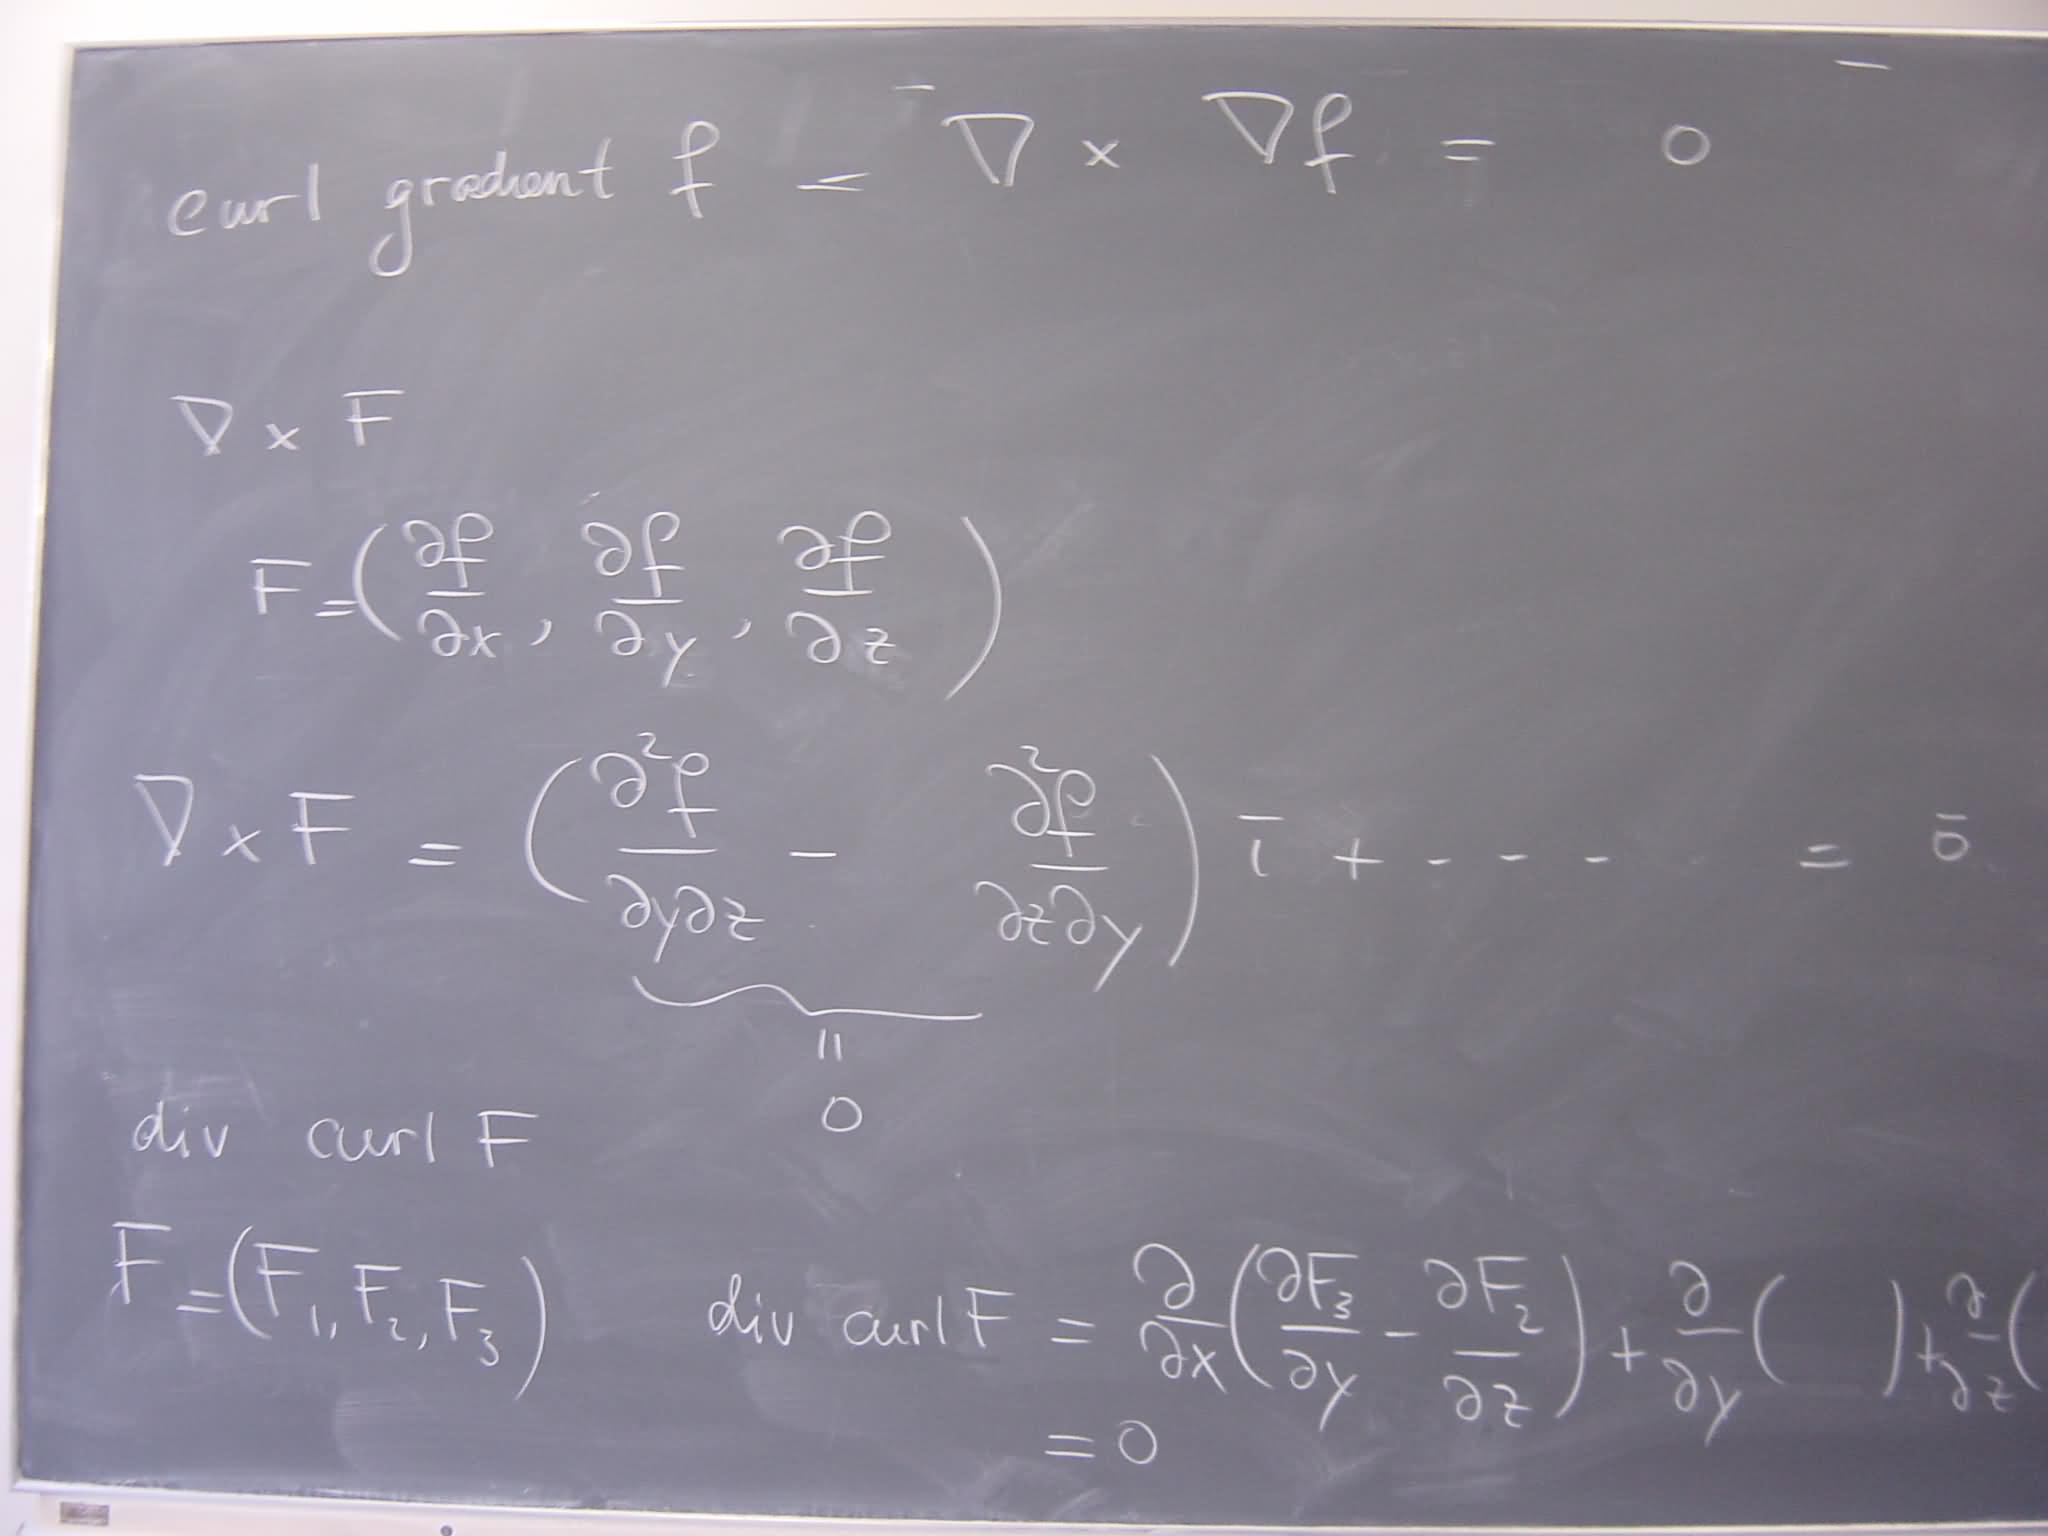 curl gradient f = ∇̄ × ∇f = 0̄
∇ × F
F = (∂f/∂x, ∂f/∂y, ∂f/∂z)
∇ × F = (∂²f/∂y∂z − ∂²f/∂z∂y) ī + - - - = ō
॥
0
div curl F
F = (F₁, F₂, F₃) div curl F = ∂/∂x (∂F₃/∂y − ∂F₂/∂z) + ∂/∂y ( ) + ∂/∂z (
= 0